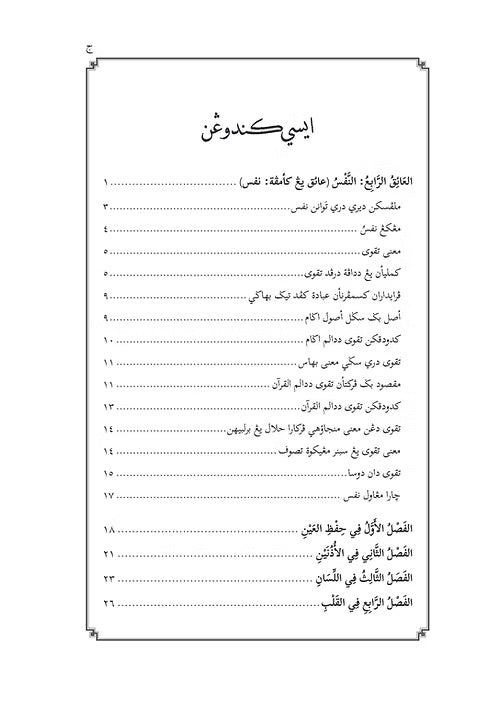 ج
ايسي كندوڠن
العَائِقُ الرَّابِعُ: النَّفْسُ (عائق يڠ كأمڤة: نفس) ١
ملڤسكن ديري دري تاونن نفس ٣
مڠكڠ نفسُ ٤
معنى تقوى ٥
كمليأن يڠ دداڤة درڤد تقوى ٥
ڤرايداران كسمڤرنأن عبادة كڤد تيݢ بهاݢي ٩
أصل بݢ سݢل أصول اݢام ٩
كدودقكن تقوى ددالم اݢام ١٠
تقوى دري سݢي معنى بهاس ١١
مقصود بݢ ڤركتأن تقوى ددالم القرآن ١١
كدودقكن تقوى ددالم القرآن ١٣
تقوى دڠن معنى منجاؤهي ڤركارا حلال يڠ برلبيهن ١٤
معنى تقوى يڠ سبنر مڠيكوة تصوف ١٤
تقوى دان دوسا ١٥
چارا مڠاول نفس ١٧
الفَصْلُ الأَوَّلُ فِي حِفْظِ العَيْنِ ١٨
الفَصْلُ الثَّانِي فِي الأُذُنَيْنِ ٢١
الفَصَلُ الثَّالِثُ فِي اللِّسَانِ ٢٣
الفَصْلُ الرَّابِعِ فِي القَلْبِ ٢٦